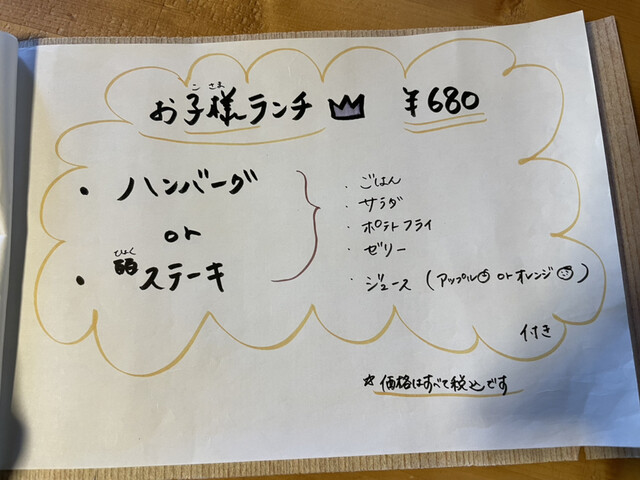 こ さま
お子様ランチ ¥680
・ハンバーグ
or
ひょく
・皕ステーキ
・ごはん
・サラダ
・ポテトフライ
・ゼリー
・ジュース (アップル or オレンジ)
付き
☆価格はすべて税込です